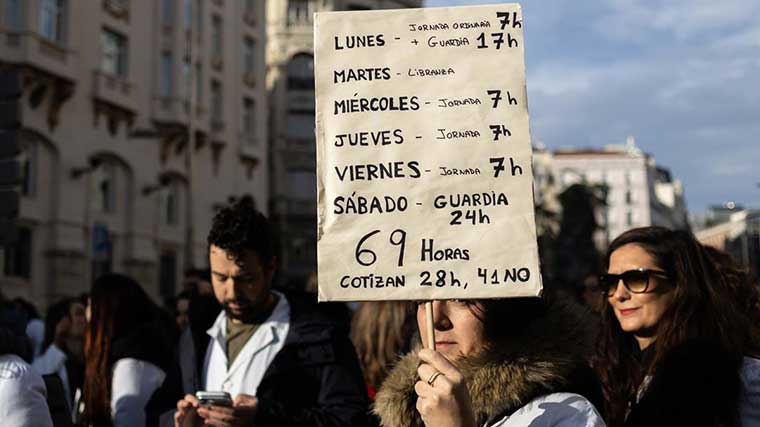 JORNADA ORDINARIA 7h
LUNES - + GUARDIA 17h
MARTES - LIBRANZA
MIÉRCOLES - JORNADA 7h
JUEVES - JORNADA 7h
VIERNES - JORNADA 7h
SÁBADO - GUARDIA
24h
69 HORAS
COTIZAN 28h, 41 NO